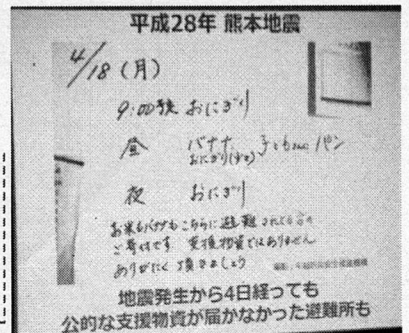 平成28年 熊本地震
4/18（月）
9:00頃 おにぎり
昼 バナナ 子どもonlyパン
おにぎり(少し)
夜 おにぎり
お米もバナナもこちらに避難されてる方の
ご寄付です 支援物資ではありません
ありがたく頂きましょう
地震発生から4日経っても
公的な支援物資が届かなかった避難所も